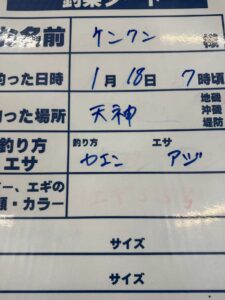 お名前 ケンケン
釣った日時 1月18日 7時頃
釣った場所 天神 地磯 沖磯 堤防
釣り方 エサ 釣り方 ウエン エサ アジ
ー、エギの
類・カラー
サイズ
サイズ